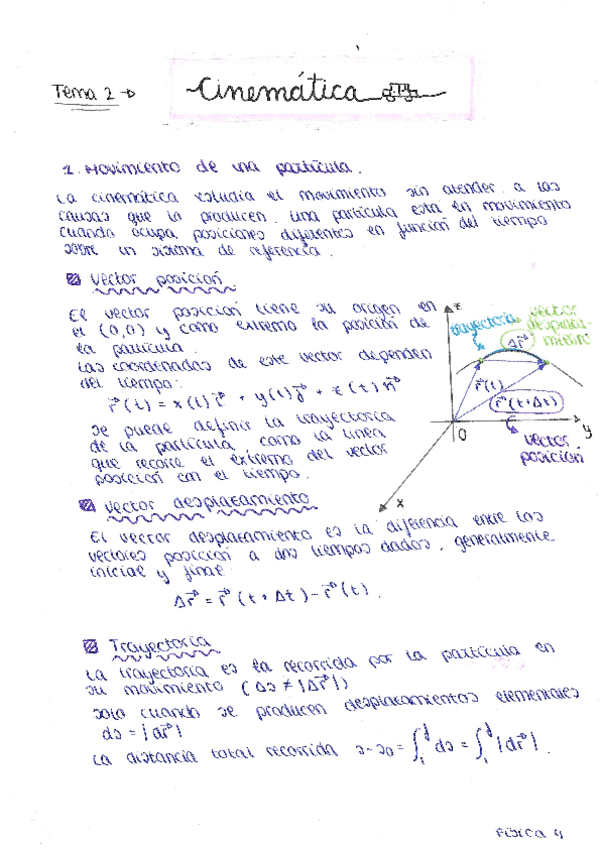 Tema 2 →
Cinemática
1. Movimiento de una partícula.
La cinemática estudia el movimiento sin atender a las
causas que la producen. Una partícula está en movimiento
cuando ocupa posiciones diferentes en función del tiempo
sobre un sistema de referencia.
Vector posición
El vector posición tiene su origen en
el (0,0) y como extremo la posición de
la partícula.
Las coordenadas de este vector dependen
del tiempo:
r⃗(t) = x(t) i⃗ + y(t) j⃗ + z(t) k⃗
Se puede definir la trayectoria
de la partícula como la línea
que recorre el extremo del vector
posición con el tiempo.
z
trayectoria
vector
desplaza-
miento
Δr⃗
r⃗(t)
r⃗(t+Δt)
0
y
vector
posición
x
Vector desplazamiento
El vector desplazamiento es la diferencia entre los
vectores posición a dos tiempos dados, generalmente
inicial y final.
Δr⃗ = r⃗(t+Δt) - r⃗(t).
Trayectoria
La trayectoria es la recorrida por la partícula en
su movimiento (Δs ≠ |Δr⃗|)
Solo cuando se producen desplazamientos elementales
ds = |dr⃗|
La distancia total recorrida s-s₀ = ∫ᵢᶠ ds = ∫ᵢᶠ |dr⃗|.
Física 4